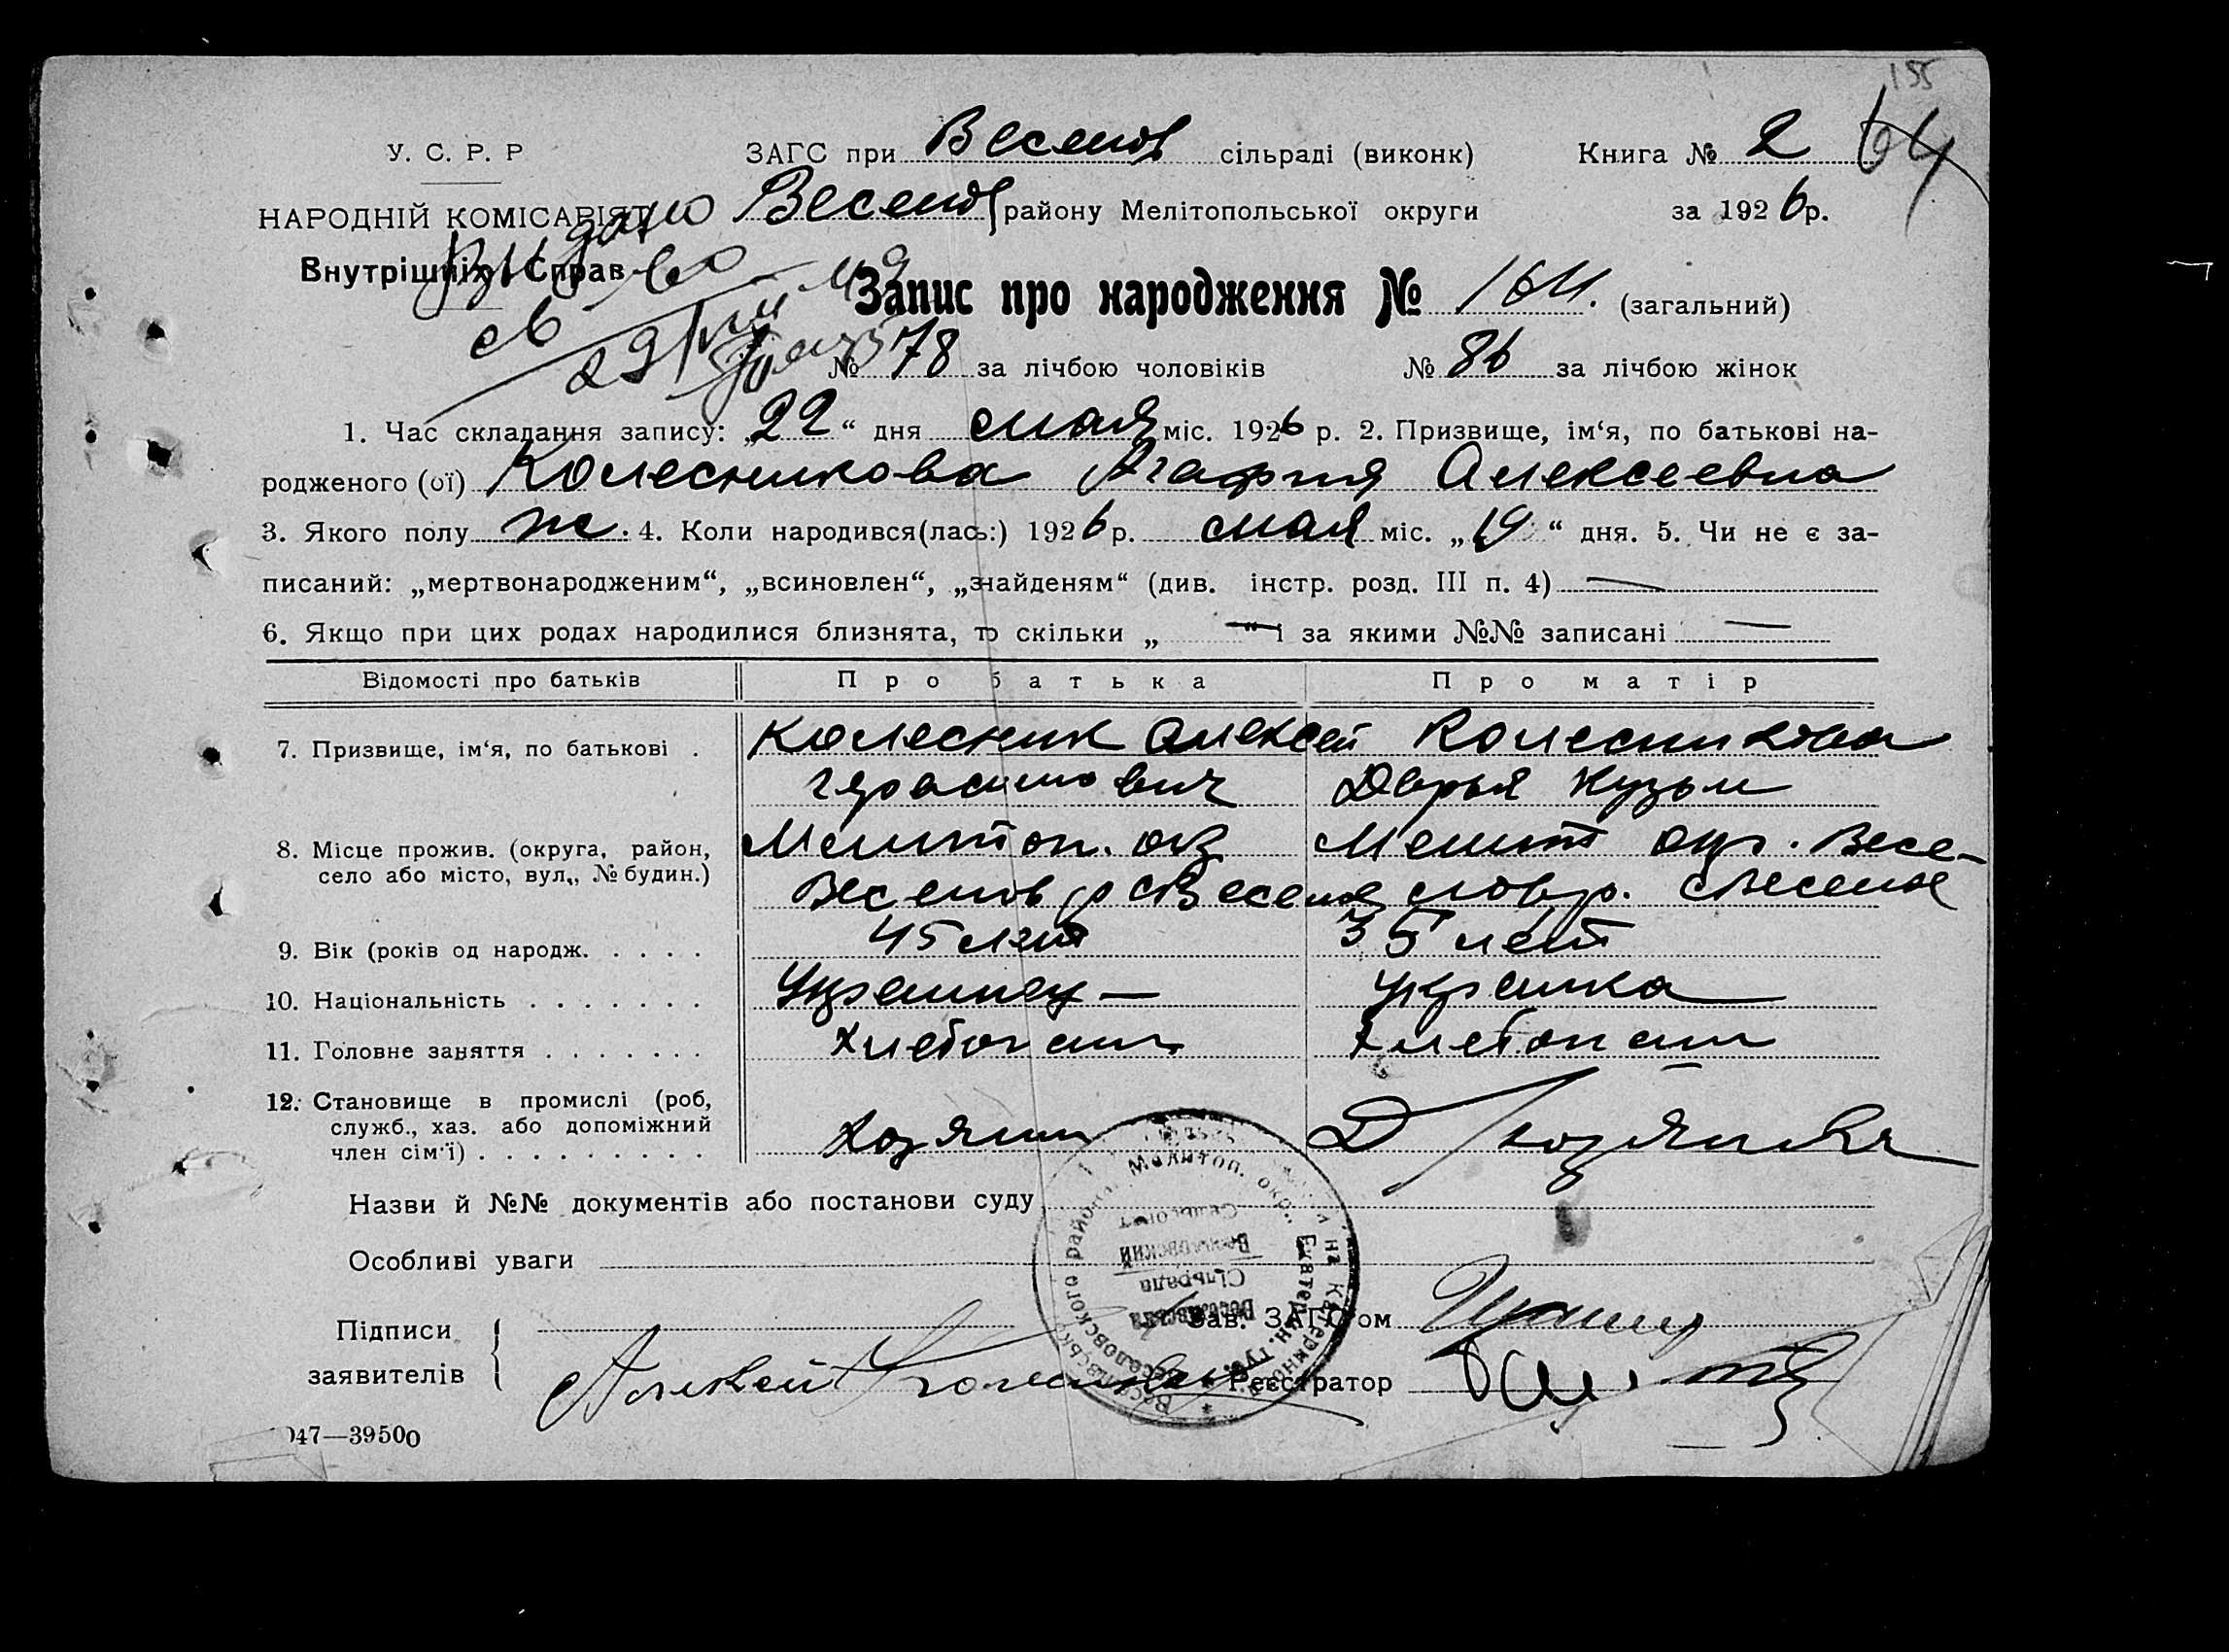 155
У. С. Р. Р
ЗАГС при Веселов сільраді (виконк)
Книга № 2 64
НАРОДНІЙ КОМІСАРІЯТ
Веселов району Мелітопольської округи
за 1926 р.
Внутрішніх Справ
Видано
Запис про народження № 164. (загальний)
№ 78 за лічбою чоловіків № 86 за лічбою жінок
1. Час складання запису: „22“ дня мая міс. 1926 р. 2. Призвище, ім‘я, по батькові на-
родженого (ої) Колесникова Агафия Алексеевна
3. Якого полу ж. 4. Коли народився(лась:) 1926 р. мая міс. „19“ дня. 5. Чи не є за-
писаний: „мертвонародженим“, „всиновлен“, „знайденям“ (див. інстр. розд. III п. 4) —
6. Якщо при цих родах народилися близнята, то скільки „—“ і за якими №№ записані —
Відомості про батьків Про батька Про матір
7. Призвище, ім‘я, по батькові . Колесник Алексей Колесникова
Герасимович Дарья Кузьм
8. Місце прожив. (округа, район, Мелитоп. окр Мелит окр. Весе-
село або місто, вул., № будин.) Веселов р с Веселое ловр. с Веселое
9. Вік (років од народж. . . . . 45 лет 35 лет
10. Національність . . . . . . . Украинец — Украинка
11. Головне заняття . . . . . . . Хлебопаш Хлебопаш
12. Становище в промислі (роб,
служб., хаз. або допоміжний Хозяин Д Хозяйка
член сім‘ї) . . . . . . . . . .
Назви й №№ документів або постанови суду
Особливі уваги
Мелитоп. окр. Екатерин. губ.
Веселовского района
Сельсовет
Веселовский
Сільрада
Веселівська
Підписи
заявителів
Зав. ЗАГС‘ом
Алексей Колесник
Реєстратор
047—39500